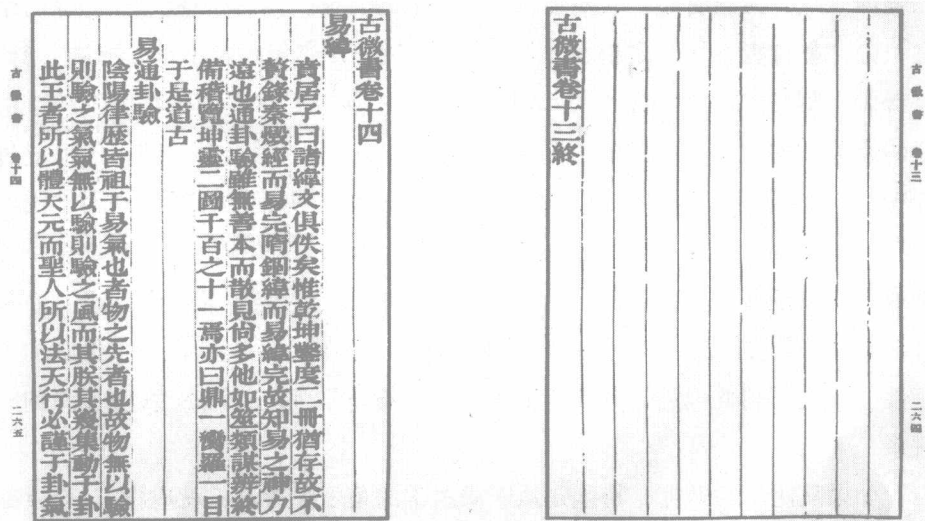 古微書 卷十三 二六四
古微書卷十三終
古微書卷十四
易緯
賁居子曰諸緯文俱佚矣惟乾坤鑿度二冊猶存故不
贅錄秦燬經而易完隋錮緯而易緯完故知易之神力
遠也通卦驗雖無善本而散見尙多他如筮類謀辨終
備稽覽坤靈二圖千百之十一焉亦曰鼎一臠羅一目
于是道古
易通卦驗
陰陽律歷皆祖于易氣也者物之先者也故物無以驗
則驗之氣氣無以驗則驗之風而其朕其幾集動于卦
此王者所以體天元而聖人所以法天行必謹于卦氣
古微書 卷十四 二六五